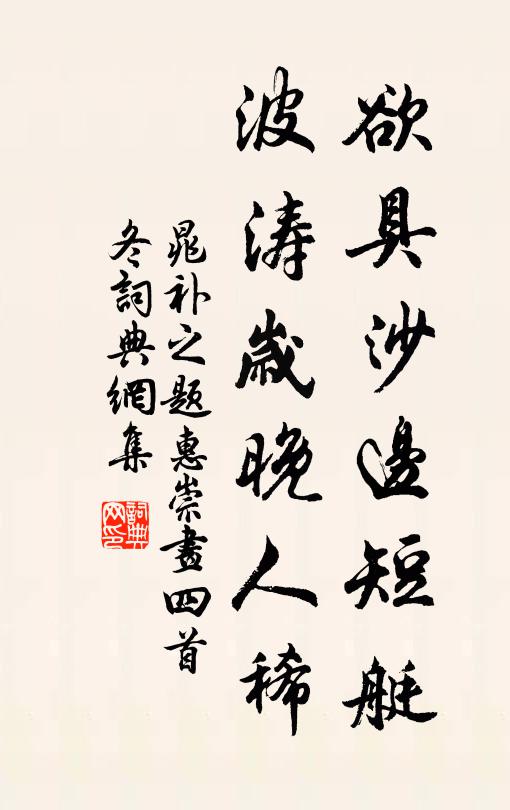 欲具沙邊短艇
波濤歲晚人稀
晁补之题惠崇畫四首
冬詞典網集
詞典网印